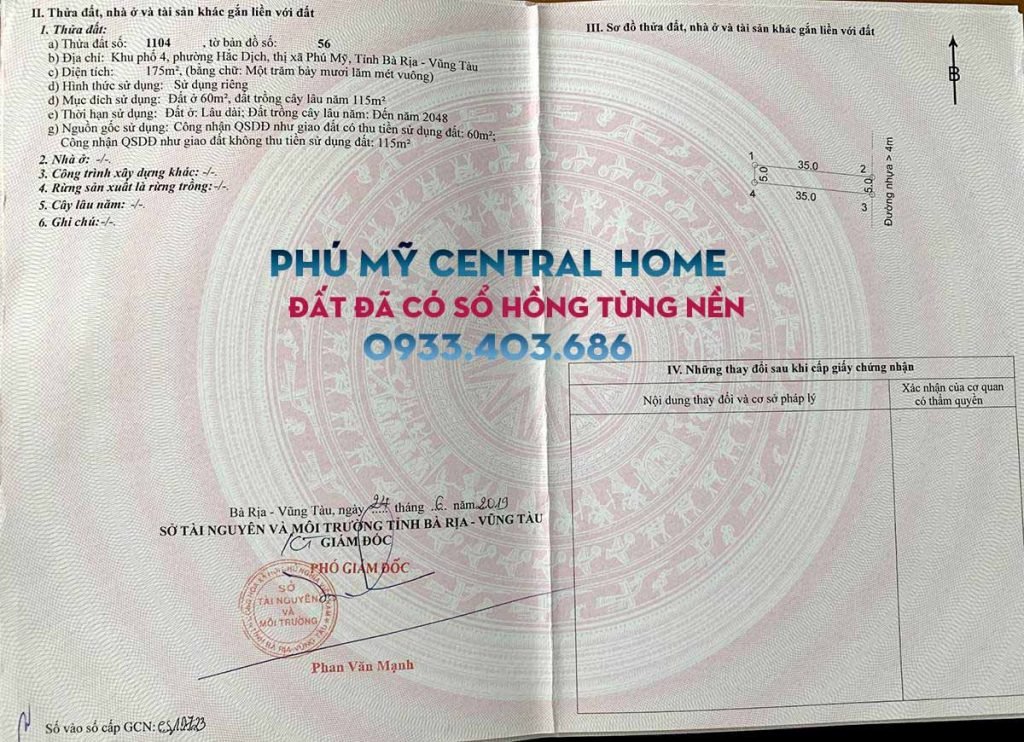 II. Thửa đất, nhà ở và tài sản khác gắn liền với đất
1. Thửa đất:
a) Thửa đất số: 1104 , tờ bản đồ số: 56
b) Địa chỉ: Khu phố 4, phường Hắc Dịch, thị xã Phú Mỹ, Tỉnh Bà Rịa - Vũng Tàu
c) Diện tích: 175m², (bằng chữ: Một trăm bảy mươi lăm mét vuông)
d) Hình thức sử dụng: Sử dụng riêng
đ) Mục đích sử dụng: Đất ở 60m², đất trồng cây lâu năm 115m²
e) Thời hạn sử dụng: Đất ở: Lâu dài; Đất trồng cây lâu năm: Đến năm 2048
g) Nguồn gốc sử dụng: Công nhận QSDĐ như giao đất có thu tiền sử dụng đất: 60m²;
Công nhận QSDĐ như giao đất không thu tiền sử dụng đất: 115m²
2. Nhà ở: -/-.
3. Công trình xây dựng khác: -/-.
4. Rừng sản xuất là rừng trồng:-/-.
5. Cây lâu năm: -/-.
6. Ghi chú:-/-.
III. Sơ đồ thửa đất, nhà ở và tài sản khác gắn liền với đất
B
1
35.0
2
5.0
5.0
4
35.0
3
Đường nhựa > 4m
PHÚ MỸ CENTRAL HOME
ĐẤT ĐÃ CÓ SỔ HỒNG TỪNG NỀN
0933.403.686
IV. Những thay đổi sau khi cấp giấy chứng nhận
Nội dung thay đổi và cơ sở pháp lý
Xác nhận của cơ quan
có thẩm quyền
Bà Rịa - Vũng Tàu, ngày 24 tháng 6 năm 2019
SỞ TÀI NGUYÊN VÀ MÔI TRƯỜNG TỈNH BÀ RỊA - VŨNG TÀU
KT GIÁM ĐỐC
PHÓ GIÁM ĐỐC
SỞ
TÀI NGUYÊN
VÀ
MÔI TRƯỜNG
TỈNH BÀ RỊA-VŨNG TÀU
Phan Văn Mạnh
Số vào sổ cấp GCN: CS19723